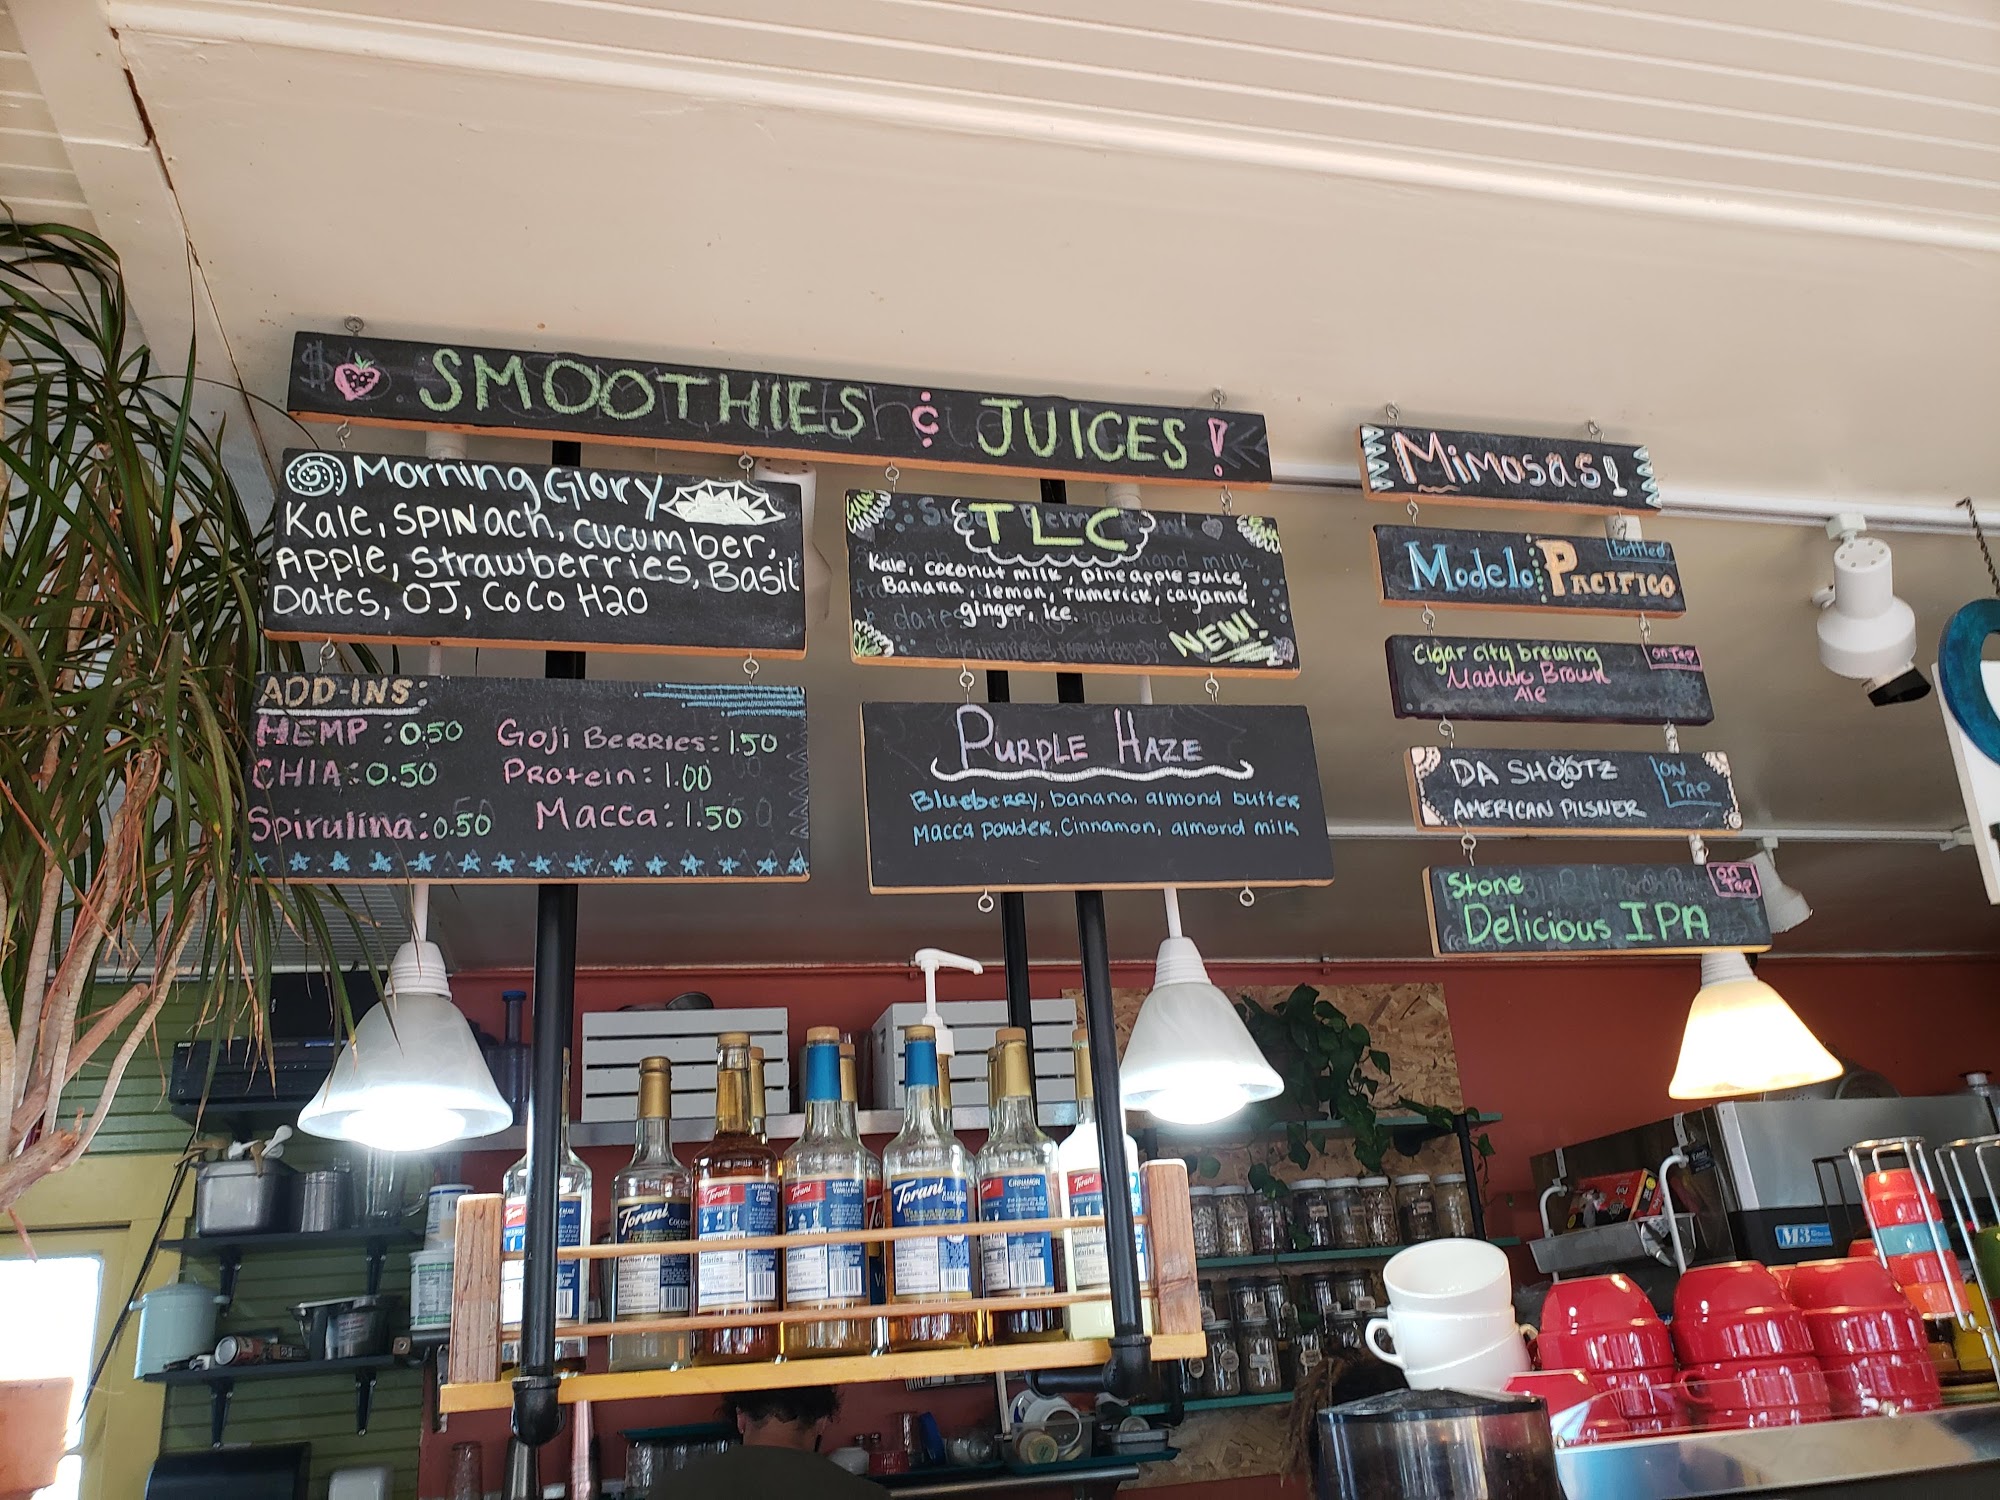 SMOOTHIES & JUICES!
Morning Glory
Kale, SPINach, cucumber,
Apple, Strawberries, Basil
Dates, OJ, CoCo H2O
ADD-INS:
HEMP: 0.50
CHIA: 0.50
Spirulina: 0.50
Goji Berries: 1.50
Protein: 1.00
Macca: 1.50
TLC
Kale, coconut milk, pineapple juice,
Banana, lemon, Tumerick, cayanne,
ginger, ice.
NEW!
PURPLE HAZE
Blueberry, banana, almond butter
Macca powder, Cinnamon, almond milk
Mimosas!
Modelo: PACIFICO
bottled
Cigar city brewing
Maduro Brown
Ale
on Tap
DA SHOOTZ
AMERICAN PILSNER
ON
TAP
Stone
Delicious IPA
on
Tap
Torani
Torani
Torani
Torani
CINNAMON